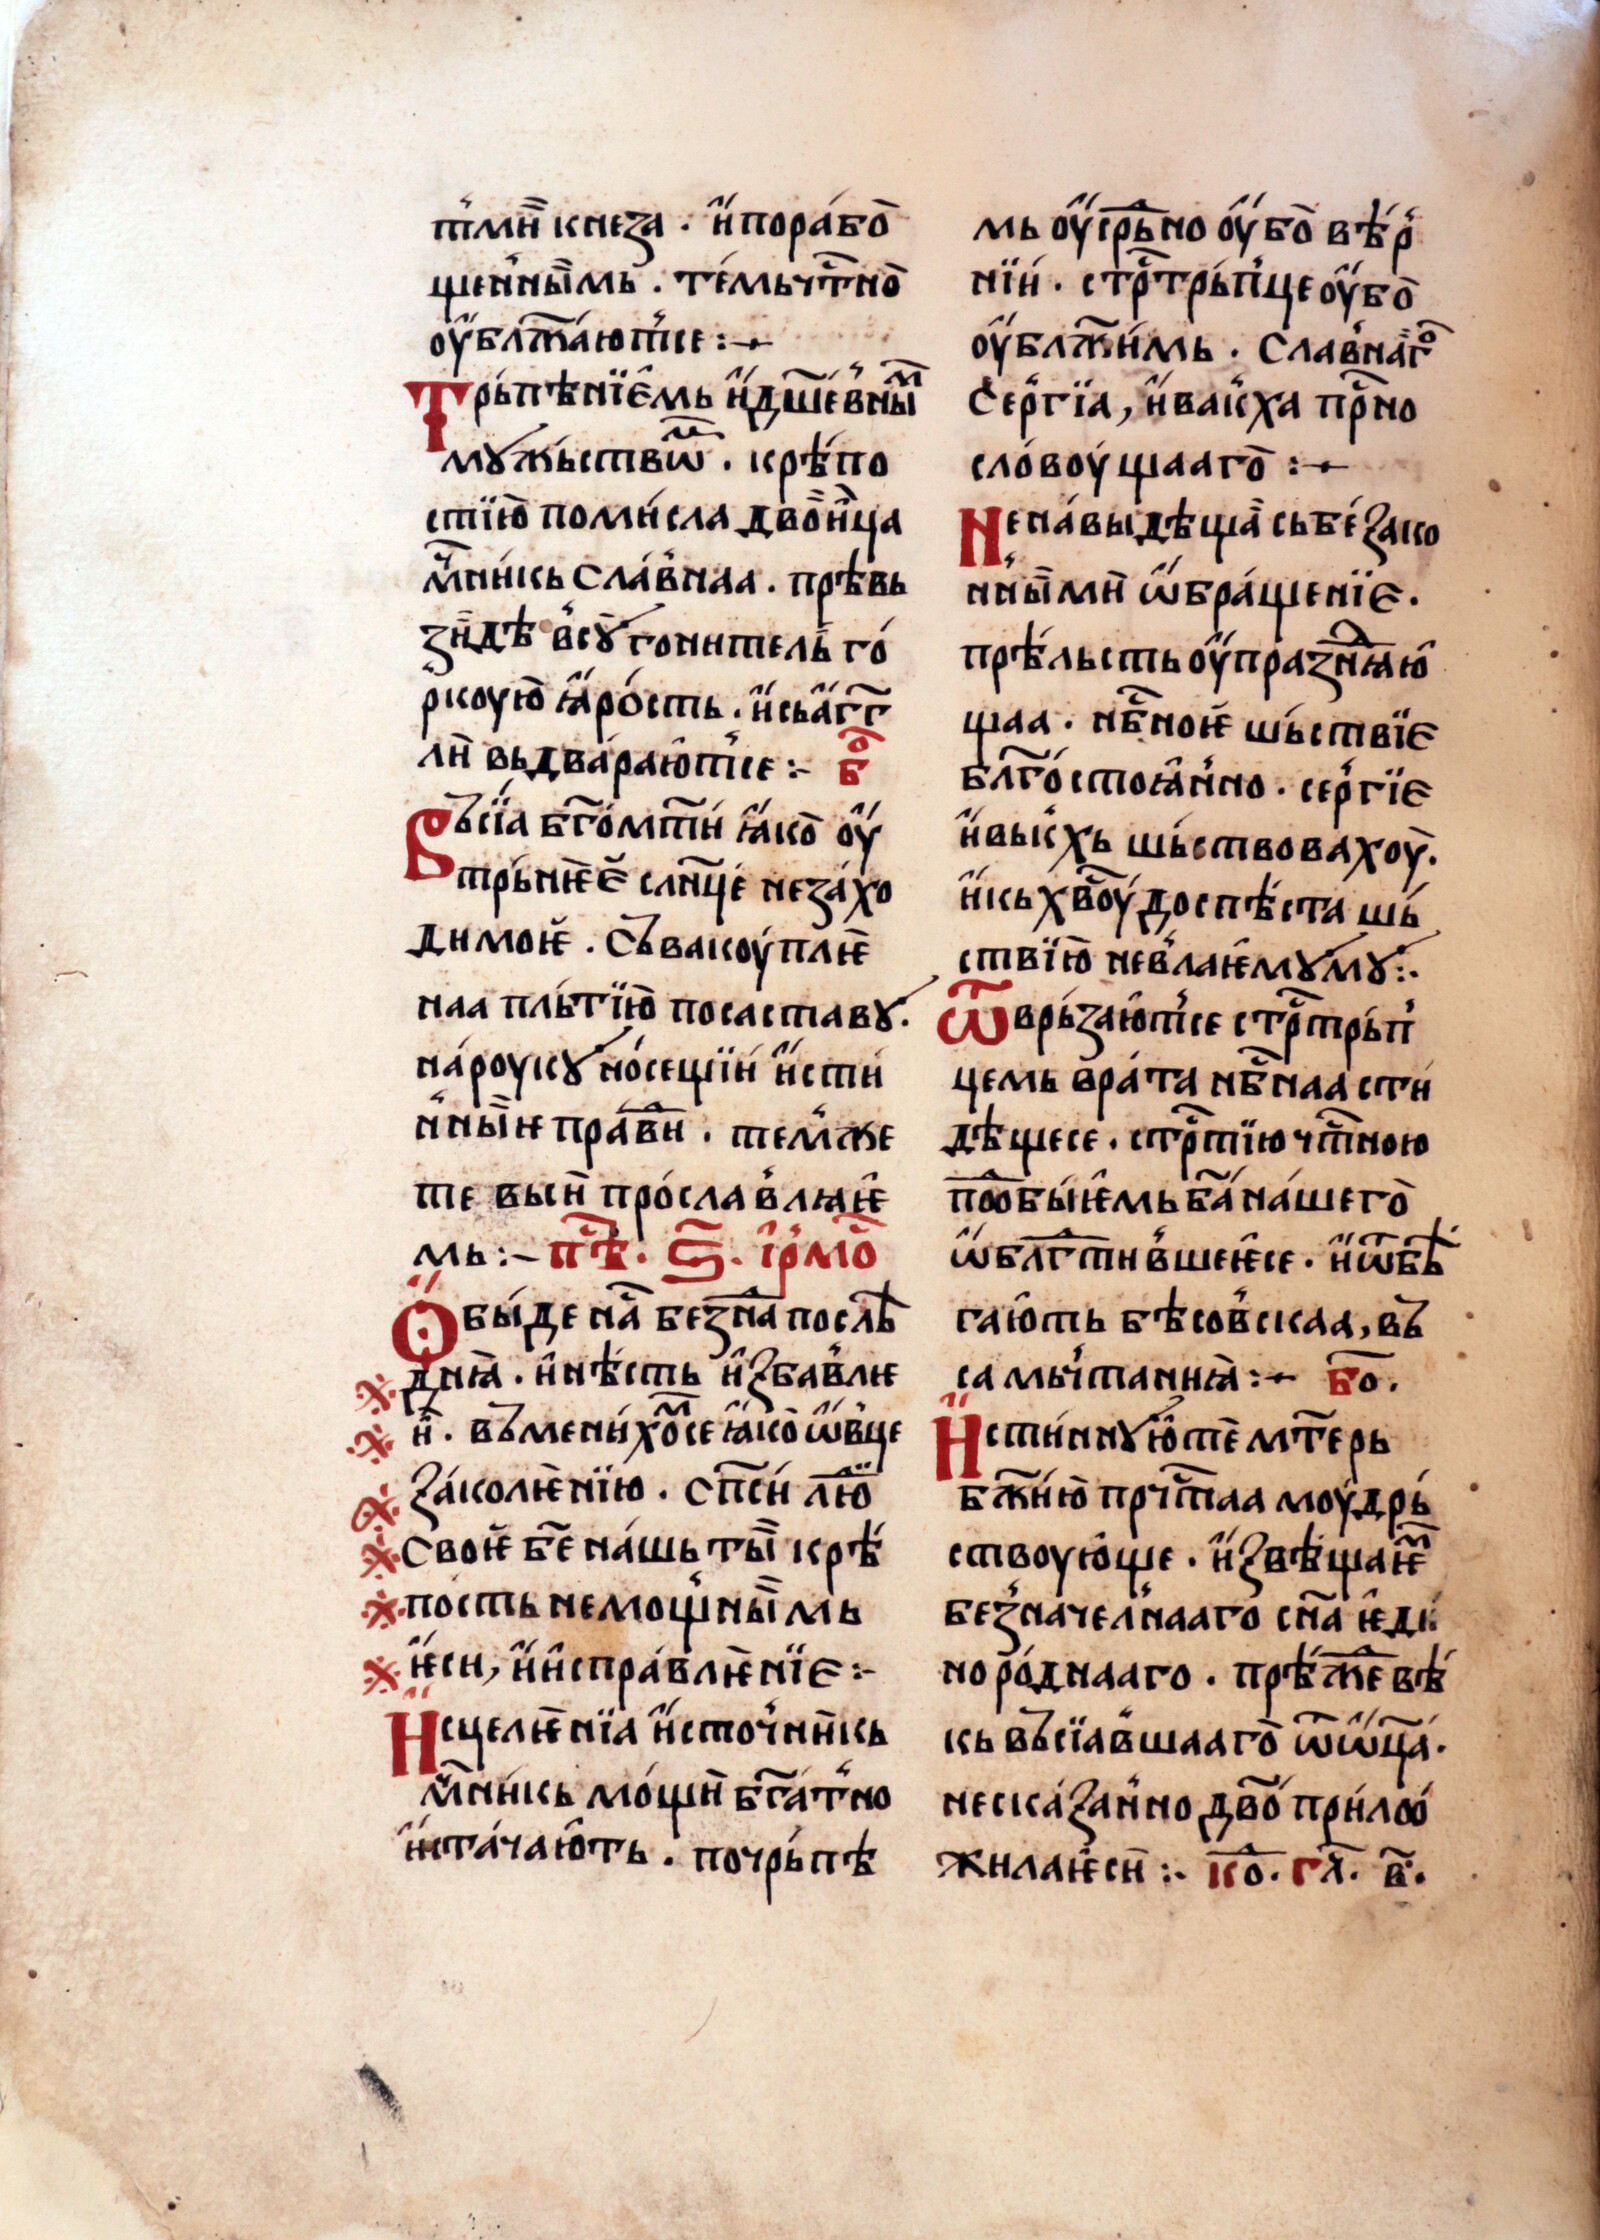 т҆мнⷩ҇ кнеза · и҆ порабо̀
щен꙽ны̏мь · те́мь чт҇но̀
оу҆блж҃а́ют҆се :⁓
Трь́пѣнїе́мь и҆ дш҃е́в꙽ны̏ⷨ
мꙋжь́ствѡⷨ҇ · крѣ́по
стїю̀ поми́сла дво̏и҆ца
м҃чни́кь сла́в꙽наа · прѣвь
зи̏дѣ в꙽сꙋ̀ гонитель́ го́
ркоую̀ ꙗ҆́рость · и҆ сь а҆́гг҃
лѝ вьдвара́ют҆се :⁓ бⷪ҇
Въсї́а бг҃омт҃и ꙗ҆́ко̀ оу҆
трь́нѥе̏ слн҃це́ неза́хо
димоѥ̀ · Съвакоу́плѥ
наа пль́тїю̀ посаставꙋ ·
на́роукꙋ но́сещїи и҆́сти́
н꙽ны̏ѥ пра́вⷩ҇и · тем꙽же
те вьсѝ про́слав꙽лꙗѥ̑
мь :⁓ пѣ҇ · ѕ҃ · і҆р꙽мо̀
Ѻ҆бы́де на̀ безⷣна послѣ̀
днꙗ̀ · и҆ нѣ́сть и҆збав꙽лѥ
и̏ · въмени́хоⷨсе ꙗ҆ко̀ ѡ҆в꙽це
за́колѥ̀нїю · сп҃си́ лю̑ⷣ
своѥ̀ бе҃ на́шь ты̏ крѣ́
пость немощ꙽ны̏мь
ѥ҆си, и҆ и҆спра́влѥ̀нїе :⁓
И҆сцелѥ̀нїа и҆сточ꙽ни́кь
м҃чни́кь мо́щѝ бг҃а́т꙽но
и҆ста́чаю̑ть · почрь́пѣ
мь оу҆ср҃ьⷣно оу҆бо̀ вѣ́р꙽
нїи́ · стрⷭ҇трь́п꙽це оу҆бо̀
оу҆блж҃и́мь · Слав꙽на̏гⷪ
Сер꙽гїа, и҆ вак꙽ха пр҃но
сло́воу́щааго̀ :⁓
Нена́выдѣща̏ сь бе́зако
н꙽ны̏мѝ ѡ҆бра́щенїе ·
прѣ́льсть оу҆празⷣнꙗю̑
щаа · нбⷭ҇ноѥ̀ шь́ствїе
блг҃о́стоꙗ҆н꙽но · сер꙽гїе
и҆ вьк꙽хь шь́ствовахоу̀ ·
и҆ кь хв҃оу́ доспѣ́ста шь́
ствїю̀ нев꙽лаѥ̑мꙋмꙋ :·
Ѿврь́заю̑т҆се стрⷭ҇трьп꙽
цемь вра́та нбⷭ҇наа сти́
дѣщесе · стрⷭ҇тїю чт҇ною
поⷣбы́ѥ̑мь ба҃ на́шего̀
ѡ҆блⷭ҇гтив꙽шеѥ̑се · и҆ ѿбѣ́
гаю̑ть бѣсов꙽скаа, въ
са мьч꙽таннꙗ̀ :⁓ бо҃ ·
И҆сти́ннꙋю̑ те̏ мт҃ерь
бж҃и́ю̀ прⷱ҇таа моу́дрь́
ствоую̑ще · и҆звѣ́щаѥⷨ҇
без꙽начел꙽нааго сн҃а ѥ҆ди
но ро́днааго · прѣ́жⷣе вѣ́
кь въсїав꙽шааго̀ ѿ ѡ҆ц҃а́ ·
неска́зан꙽но дво҃ при́ло
жилаѥ̀сѝ :· ко҇ · гл҃ · в҃ ·